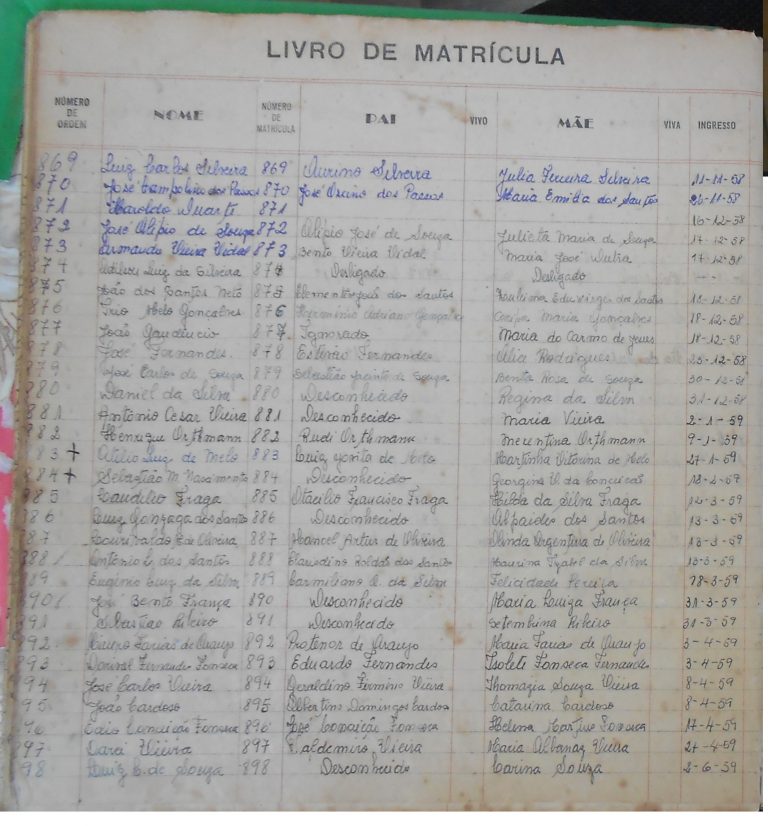 LIVRO DE MATRÍCULA
NÚMERO DE ORDEM NOME NÚMERO DE MATRÍCULA PAI VIVO MÃE VIVA INGRESSO
869 Luiz Carlos Silveira 869 Aurino Silveira Julia Ferreira Silveira 11-11-58
870 José 870 José dos Passos Maria Emilia dos Santos 26-11-58
871 Haroldo Duarte 871 16-12-58
872 José Alipio de Souza 872 Alipio José de Souza Julieta Maria de Souza 17-12-58
873 Armando Vieira Vidal 873 Bento Vieira Vidal Maria José Dutra 17-12-58
874 Luiz da Silveira 874 Desligado Desligado
875 João dos Santos Neto 875 José dos Santos dos Santos 18-12-58
876 Gonçalves 876 Adriano Gonçalves Maria Gonçalves 18-12-58
877 João Gaudiucio 877 Ignorado Maria do Carmo de Jesus 18-12-58
878 José Fernandes 878 Fernandes Rodrigues 23-12-58
879 José Carlos de Souza 879 Sebastião de Souza Benta Rosa de Souza 30-12-58
880 Daniel da Silva 880 Desconhecido Regina da Silva 31-12-58
881 Antonio Cesar Vieira 881 Desconhecido Maria Vieira 2-1-59
882 Henrique Orthmann 882 Rudi Orthmann Merentina Orthmann 9-1-59
883 + Luiz de Melo 883 Luiz de Melo Martinha Vitorina de Melo 27-1-59
884 + Sebastião M. Nascimento 884 Desconhecido Georgina 18-2-59
885 Claudilio Fraga 885 Otacilio Francisco Fraga Hilda da Silva Fraga 12-3-59
886 Luiz Gonzaga dos Santos 886 Desconhecido Alpaides dos Santos 13-3-59
887 de Oliveira 887 Manoel Artur de Oliveira Olinda Argentina de Oliveira 13-3-59
888 Antonio dos Santos 888 Claudino dos Santos Laurina Izabel da Silva 13-3-59
889 Eugênio Luiz da Silva 889 Carmiliano da Silva Felicidade Pereira 18-3-59
890 José Bento França 890 Desconhecido Maria Luiza França 31-3-59
891 Sebastião Ribeiro 891 Desconhecido Setembrina Ribeiro 31-3-59
892 Farias de Araujo 892 Protenor de Araujo Maria Farias de Araujo 3-4-59
893 Dorival Fernandes Fonseca 893 Eduardo Fernandes Isolete Fonseca Fernandes 3-4-59
894 José Carlos Vieira 894 Geraldino Firmino Vieira Thomazia Souza Vieira 8-4-59
895 João Cardoso 895 Albertino Domingos Cardoso Catarina Cardoso 8-4-59
896 Conceição Fonseca 896 José Conceição Fonseca Helena Fonseca 17-4-59
897 Darci Vieira 897 Valdemiro Vieira Maria Albanaz Vieira 27-4-59
898 Luiz C. de Souza 898 Desconhecido Carina Souza 2-6-59